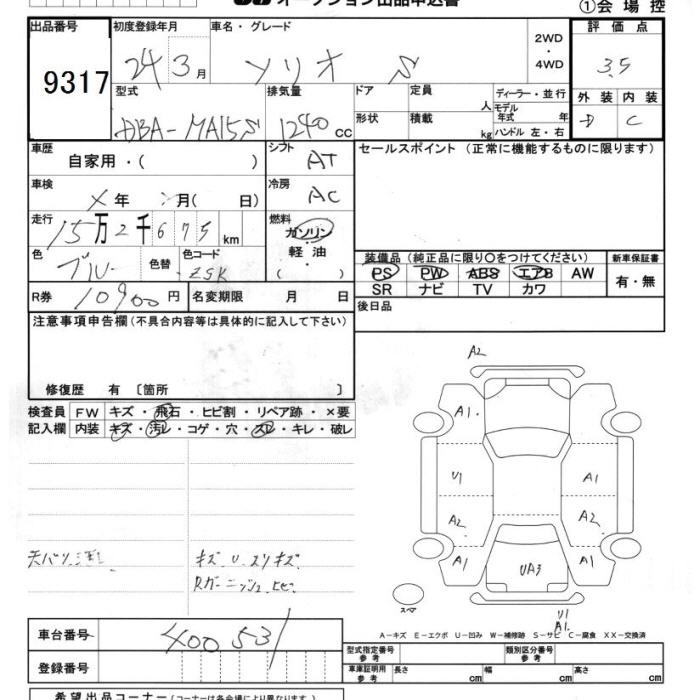 オークション出品申込書
①会場控
出品番号 初度登録年月 車名・グレード 2WD ・ 4WD 評価点
9317 24 3月 ソリオ S 3.5
型式 排気量 ドア 定員 人 ディーラー・並行 外装 内装
DBA-MA15S 1240 cc 形状 積載 kg モデル年式 年 ハンドル 左・右 D C
車歴 自家用・( ) シフト AT セールスポイント (正常に機能するものに限ります)
車検 X 年 月( 日) 冷房 AC
走行 15万2千675 km 燃料 ガソリン・軽油 ( )
色 ブルー 色替 色コード ZSK 装備品 (純正品に限り○をつけてください) 新車保証書
PS PW ABS エアB AW 有・無
R券 10900円 名変期限 月 日 SR ナビ TV カワ
注意事項申告欄 (不具合内容等は具体的に記入して下さい) 後日品
修復歴 有 [箇所 ]
検査員 FW キズ・飛石・ヒビ割・リペア跡・×要
記入欄 内装 キズ・汚レ・コゲ・穴・スレ・キレ・破レ
A2
A1
U1 A1
A2 A2
A1 UA3 A1
天バリ キズ U スリキズ
Rガーニッシュ ヒビ
スペア
U1
A1
A-キズ E-エクボ U-凹み W-補修跡 S-サビ C-腐食 XX-交換済
車台番号 400531
登録番号
型式指定番号 参考 類別区分番号 参考
車庫証明用 参考 長さ cm 幅 cm 高さ cm
希望出品コーナー (コーナーは各会場により異なります)